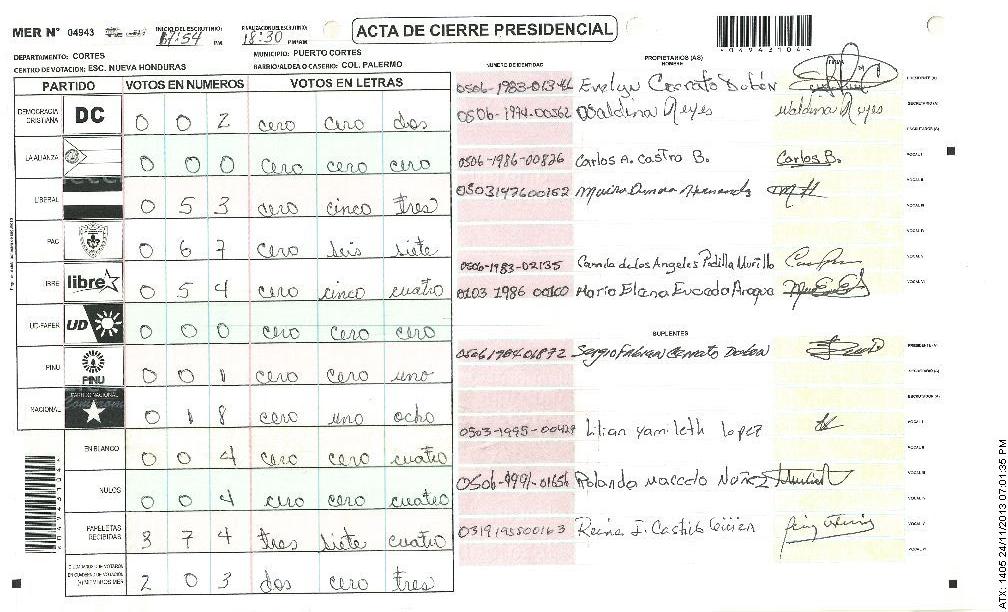 MER N° 04943
INICIO DEL ESCRUTINIO: 17:54 PM
FINALIZACION DEL ESCRUTINIO: 18:30 PM/AM
ACTA DE CIERRE PRESIDENCIAL
DEPARTAMENTO: CORTES
MUNICIPIO: PUERTO CORTES
CENTRO DE VOTACION: ESC. NUEVA HONDURAS
BARRIO/ALDEA O CASERIO: COL. PALERMO
PARTIDO VOTOS EN NUMEROS VOTOS EN LETRAS
DEMOCRACIA CRISTIANA DC 0 0 2 cero cero dos
LA ALIANZA 0 0 0 cero cero cero
LIBERAL 0 5 3 cero cinco tres
PAC 0 6 7 cero seis siete
LIBRE libre 0 5 4 cero cinco cuatro
UD-FAPER UD 0 0 0 cero cero cero
PINU PINU 0 0 1 cero cero uno
NACIONAL PARTIDO NACIONAL 0 1 8 cero uno ocho
EN BLANCO 0 0 4 cero cero cuatro
NULOS 0 0 4 cero cero cuatro
PAPELETAS RECIBIDAS 3 7 4 tres siete cuatro
2 0 3 dos cero tres
NUMERO DE IDENTIDAD
PROPIETARIOS (AS)
NOMBRE
FIRMA
0506-1983-01346 Evelyn Cerrato Dubón PRESIDENTE (A)
0506-1994-00562 Waldina Reyes Waldina Reyes SECRETARIO (A)
ESCRUTADOR (A)
0506-1986-00826 Carlos A. Castro B. Carlos B. VOCAL I
0503197600152 Hernandez VOCAL II
VOCAL III
VOCAL IV
0506-1983-02135 Camila de los Angeles Padilla Murillo VOCAL V
0103 1986 00100 Maria Elena VOCAL VI
SUPLENTES
0506198401872 Sergio Fabian Cerrato Dubon PRESIDENTE (A)
SECRETARIO (A)
ESCRUTADOR (A)
0503-1995-00429 Lilian yamileth lopez VOCAL I
VOCAL II
Rolando Nuñez VOCAL III
VOCAL IV
0319195500163 Reina J. Castillo VOCAL V
VOCAL VI
*0494321044*
ATX: 1405 24/11/2013 07:01:35 PM